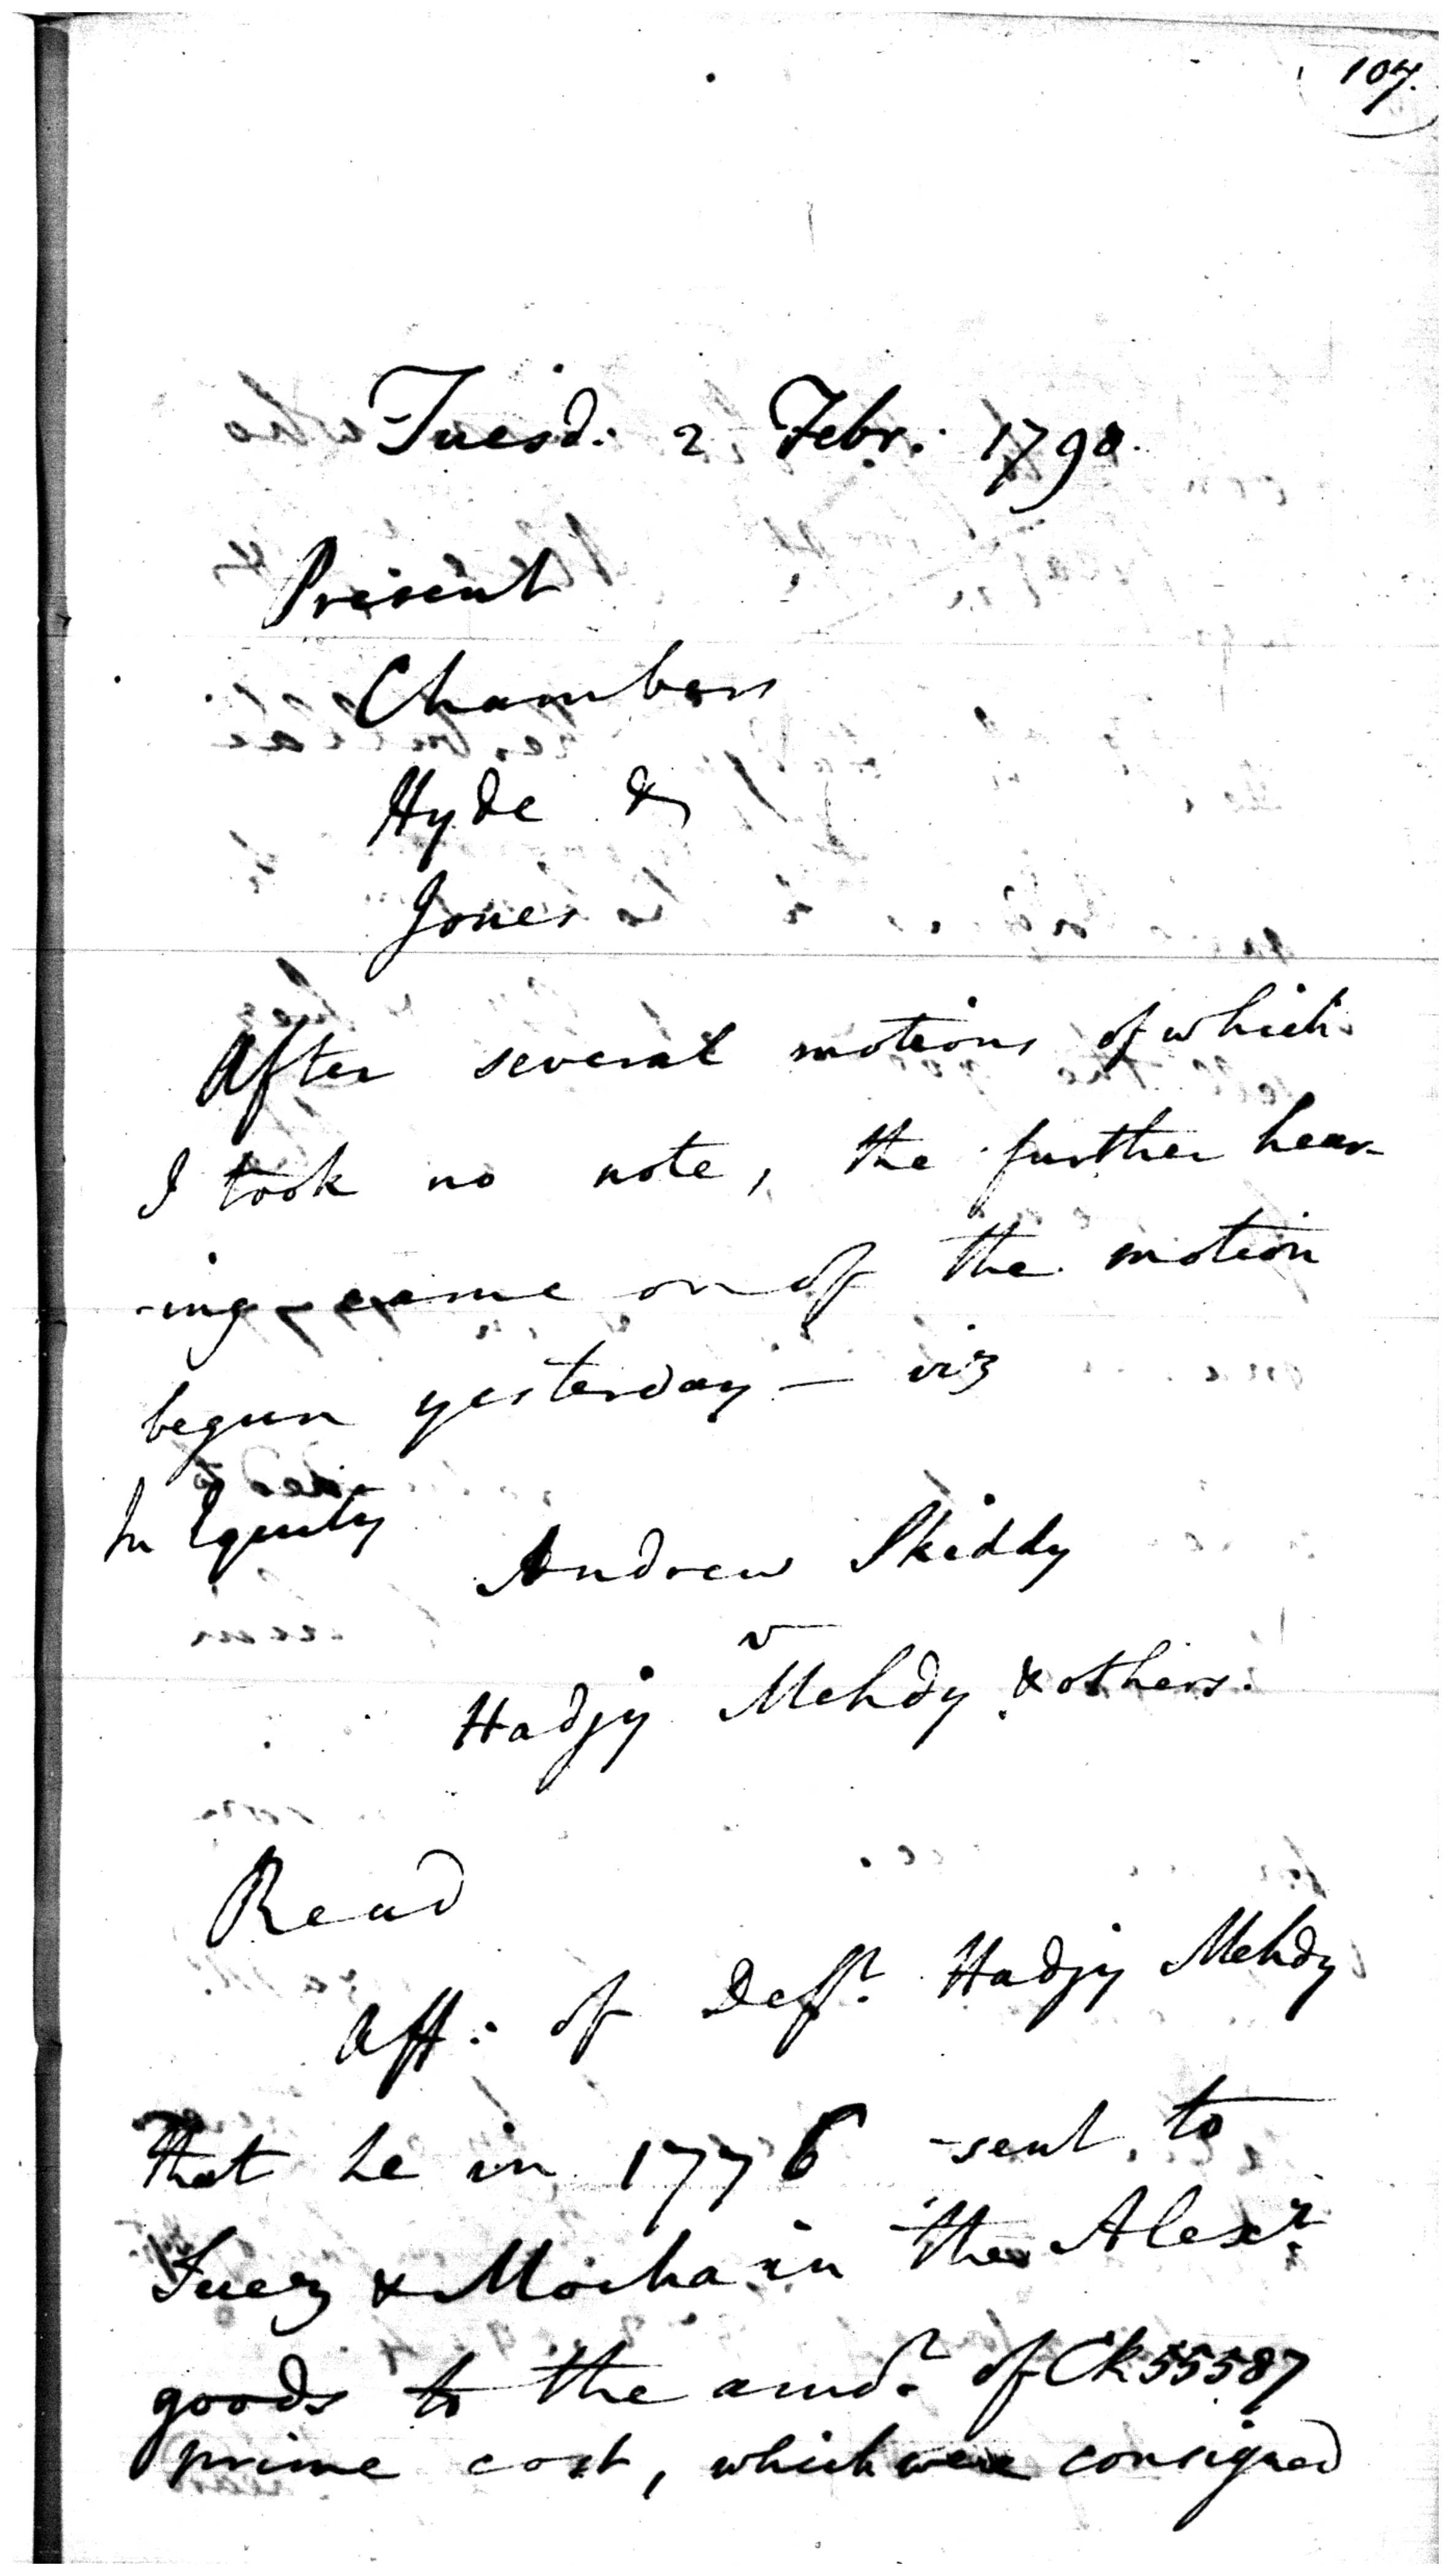 107.
Tuesd. 2 Febr. 1790.
Present
Chambers
Hyde &
Jones
After several motions of which
I took no note, the further hear-
-ing came on of the motion
begun yesterday — viz
In Equity
Andrew Skiddy
v
Hadjy Mehdy & others.
Read
Aff: of Deft. Hadjy Mehdy
that he in 1776 sent to
Suez & Mocha in the Alexr.
goods to the amot. of CR 55587
prime cost, which were consigned